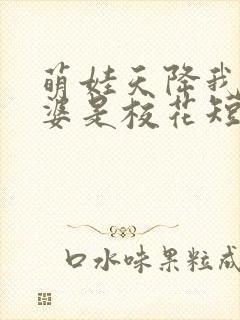 萌娃天降我
婆是校花短
口水味果粒成